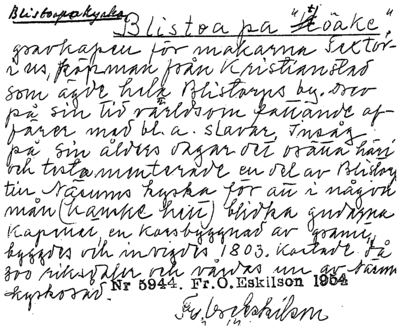 Blistorpakyrka
Blistorpa "Höåke",
gravkapell för makarna Sextor-
ius, köpman från Kristianstad
som ägde hela Blistorps by. drev
på sin tid världsomfattande af-
färer med bl.a. slavar, Insåg
på sin ålders dagar det orätta häri
och testamenterade en del av Blistorp
till Näsums kyrka för att i någon
mån (kanske helt) blidka gudarna
Kapellet, en korsbyggnad av granit,
byggdes och invigdes 1803. Kostade då
300 riksdaler och vårdas nu av Näsums
kyrkoråd.
Nr 5944. Fr.O. Eskilson 1954
Fr. O. Eskilson